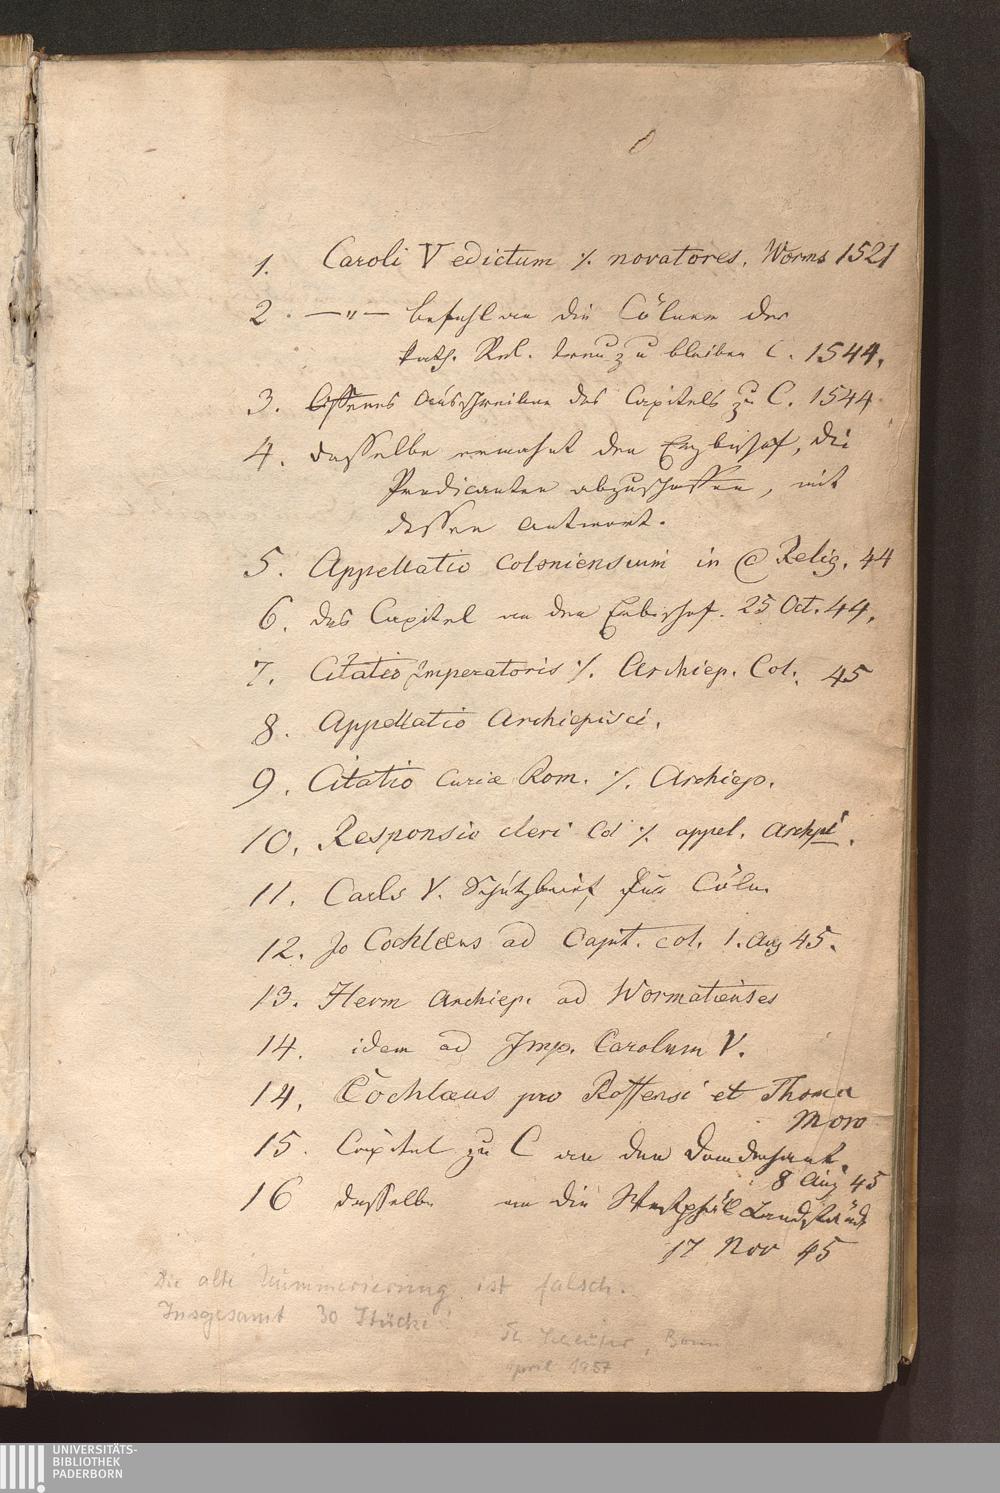 1. Caroli V edictum ./. novatores. Worms 1521
2. —"— Befehl an die Cölner der
kath. Rel. treu zu bleiben C. 1544.
3. Offenes Ausschreiben des Capitels zu C. 1544
4. dasselbe ermahnt den Erzbischof, die
Predicanten abzuschaffen, mit
dessen Antwort.
5. Appellatio Coloniensium in Relig. 44
6. das Capitel an den Erzbischof. 25 Oct. 44.
7. Citatio Imperatoris ./. Archiep. Col. 45
8. Appellatio Archiepisci.
9. Citatio Curiæ Rom. ./. Archiep.
10. Responsio cleri Col ./. appel. Archpi.
11. Carls V. Schutzbrief für Cöln
12. Jo Cochlæus ad Capit. col. 1. Aug 45.
13. Herm Archiep. ad Wormatienses
14. idem ad Imp. Carolum V.
14. Cochlæus pro Roffensi et Thoma
Moro
15. Capitel zu C an den Domdechant.
8 Aug 45
16 dasselbe an die Westphäl Landstände
17 Nov 45
Die alte Nummerierung ist falsch.
Insgesamt 30 Stücke!
Schlüter, Bonn
April 1957
UNIVERSITÄTS-
BIBLIOTHEK
PADERBORN